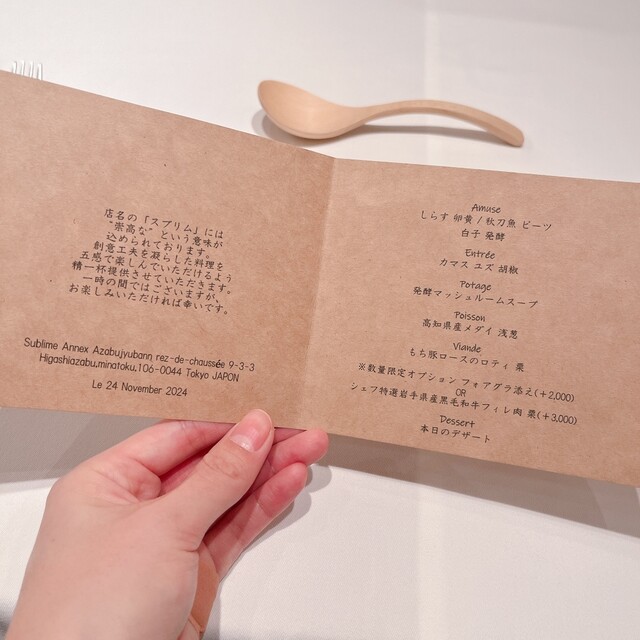 店名の「スプリム」には
"崇高な" という意味が
込められております。
創意工夫を凝らした料理を
五感で楽しんでいただけるよう
精一杯提供させていただきます。
一時の間ではございますが、
お楽しみいただければ幸いです。
Sublime Annex Azabujyubann rez-de-chaussée 9-3-3
Higashiazabu,minatoku,106-0044 Tokyo JAPON
Le 24 November 2024
Amuse
しらす 卵黄 / 秋刀魚 ビーツ
白子 発酵
Entrée
カマス ユズ 胡椒
Potage
発酵マッシュルームスープ
Poisson
高知県産メダイ 浅葱
Viande
もち豚ロースのロティ 栗
※数量限定オプション フォアグラ添え(+2,000)
OR
シェフ特選岩手県産黒毛和牛フィレ肉 栗(+3,000)
Dessert
本日のデザート